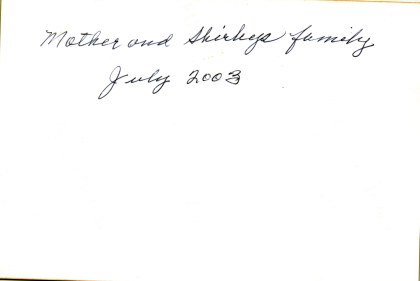 Mother and Shirleys family
July 2003